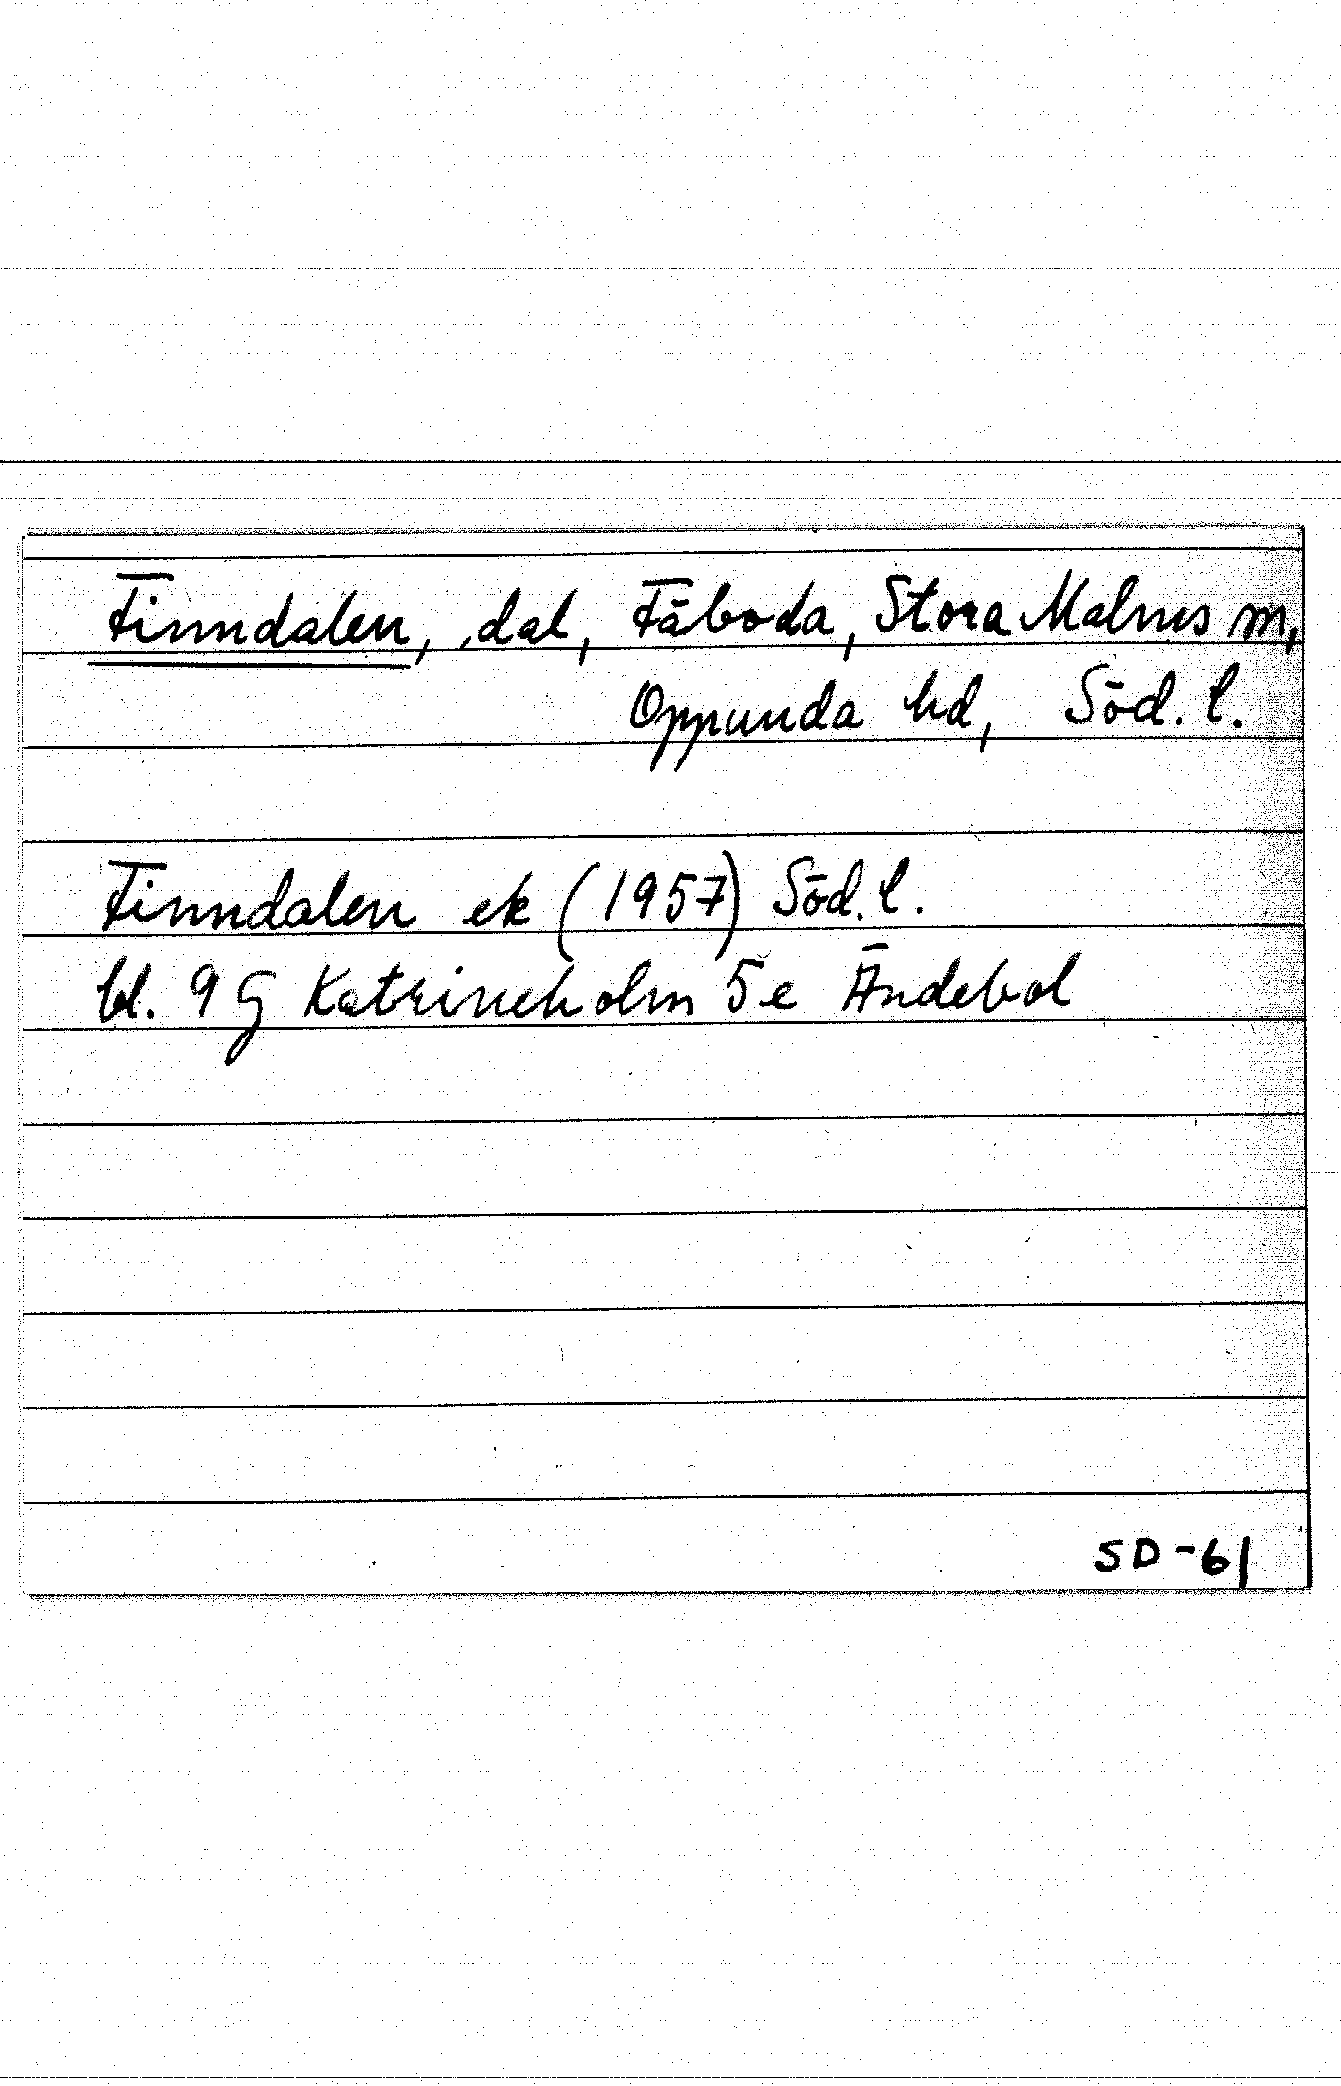 Finndalen, dal, Fäboda, Stora Malms sn,
Oppunda hd, Söd. l.
Finndalen ek (1957) Söd. l.
bl. 9 G Katrineholm 5e Ändebol
SD-61